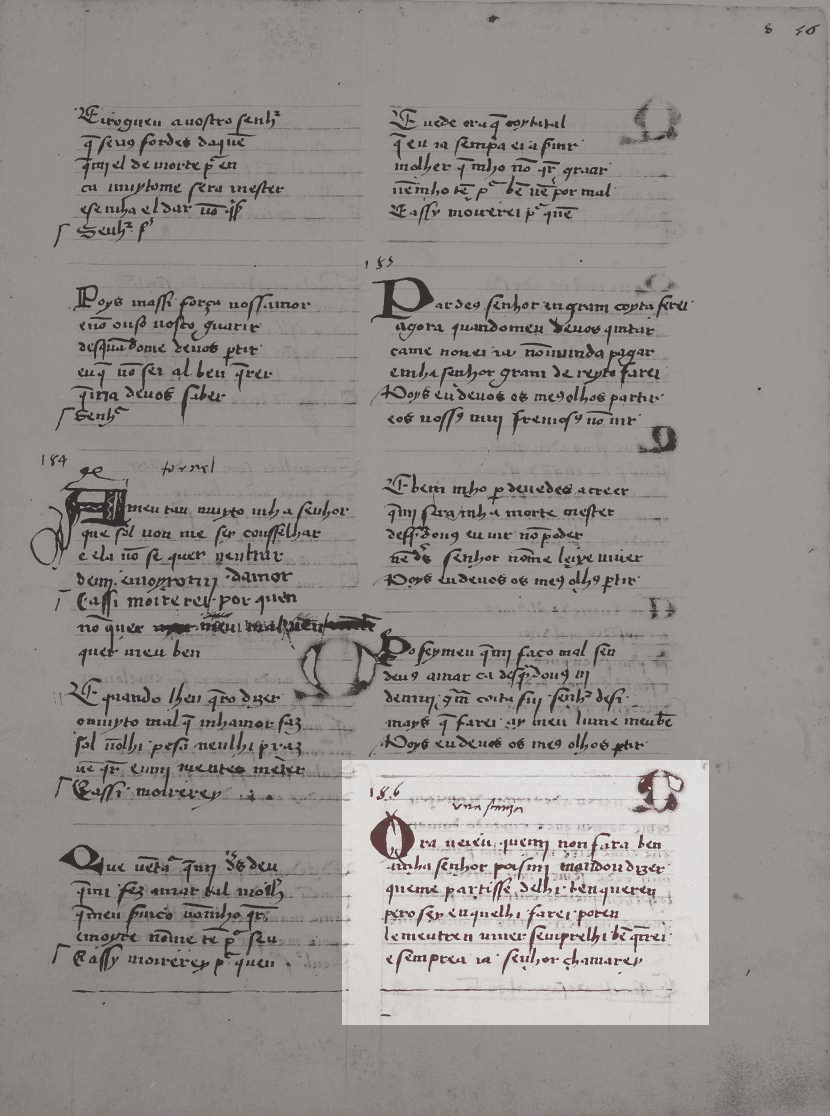 E rogueu a uostro senh̃
q̃ seıas fordes daquẽ
q̃ mj el de morte p̃ en
ca muytome sera mester
ese mha el dar nõ q̃s
Senh̃ p̃
Poys massi força uossamor
enõ ouso uosco guarir
desquãdome deuos p̃tir
euq̃ nõ sei al ben q̃rer
q̃ irıa deuos saber
Senh̃
184
tornel
Ameu tan muyto mha senhor
que sol non me sey conselhar
e ela nõ se quer nenbrar
demj emoyromj damor
E assi moirerey por quen
nõ quer
quer meu ben
E quando lheu q̃ro dizer
omuyto mal q̃ mhamor faz
sol nõlhi pesa neulhi praz
nẽ q̃r emj mentes meter
E assi moirerey
Que uẽta q̃ mj d̃s deu
q̃ mi fez amar tal molh̃
q̃ meu s̃uiço nõmho q̃r
emoyro nõme tẽ p̃ seu
E assy moirerey p̃ quen
E uede ora q̃ coyta tal
q̃ eu ia sempra ei a s̃uir
molher q̃ mho nõ q̃r graçir
nẽ mho tẽ p̃ bẽ nẽ por mal
E assy moirerei p̃ quẽ
185
Par deus senhor en gram coyta serei
agora quandomeu deuos quitar
came nonei ia no mundo a pagar
emha senhor gram dereyto farei
Poys eu deuos os meus olhos partir
eos uossos muj fremosos nõ uir
E bem mho p̃ deuedes a creer
q̃ mj sera mha morte mester
des q̃ uos eu uir nõ poder
nẽ d̃s senhor nõme leixe uiuer
Poys eu deuos os meus olhos p̃tir
Po seymeu q̃ mj faço mal sen
deuos amar ca des q̃ uos uj
demuj gm̃ coita fuj senh̃ desi
mays q̃ farei ay meu lume meu bẽ
Poys eu deuos os meus olhos p̃tir
186
Ora ueieu quemj non fara ben
amha senhor poismj mandou dizer
queme partisse delhi ben querer
pero sey euquelhi farei poren
lemeutren uiuer semprelhi bẽ q̃rrei
esemprea ia senhor chamarey